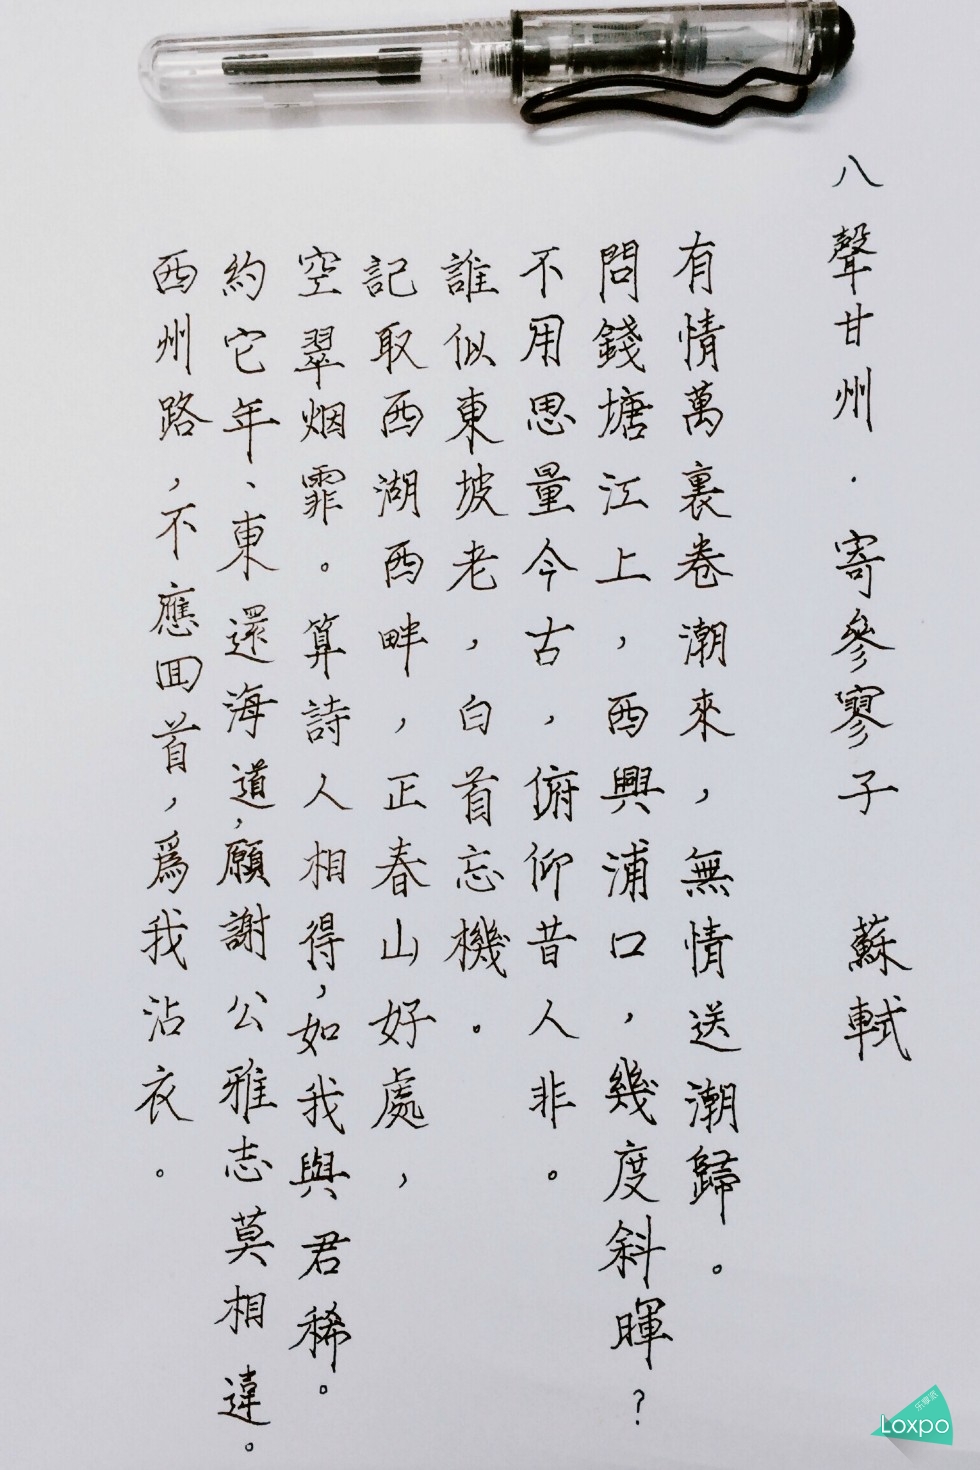 八聲甘州．寄參寥子 蘇軾
有情萬裏卷潮來，無情送潮歸。
問錢塘江上，西興浦口，幾度斜暉？
不用思量今古，俯仰昔人非。
誰似東坡老，白首忘機。
記取西湖西畔，正春山好處，
空翠烟霏。算詩人相得，如我與君稀。
約它年、東還海道，願謝公雅志莫相違。
西州路，不應回首，爲我沾衣。
乐享派
Loxpo